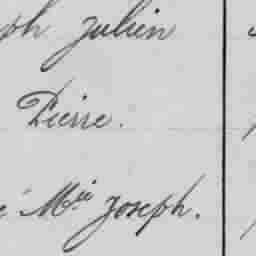 ph Julien
Pierre.
Mie Joseph.